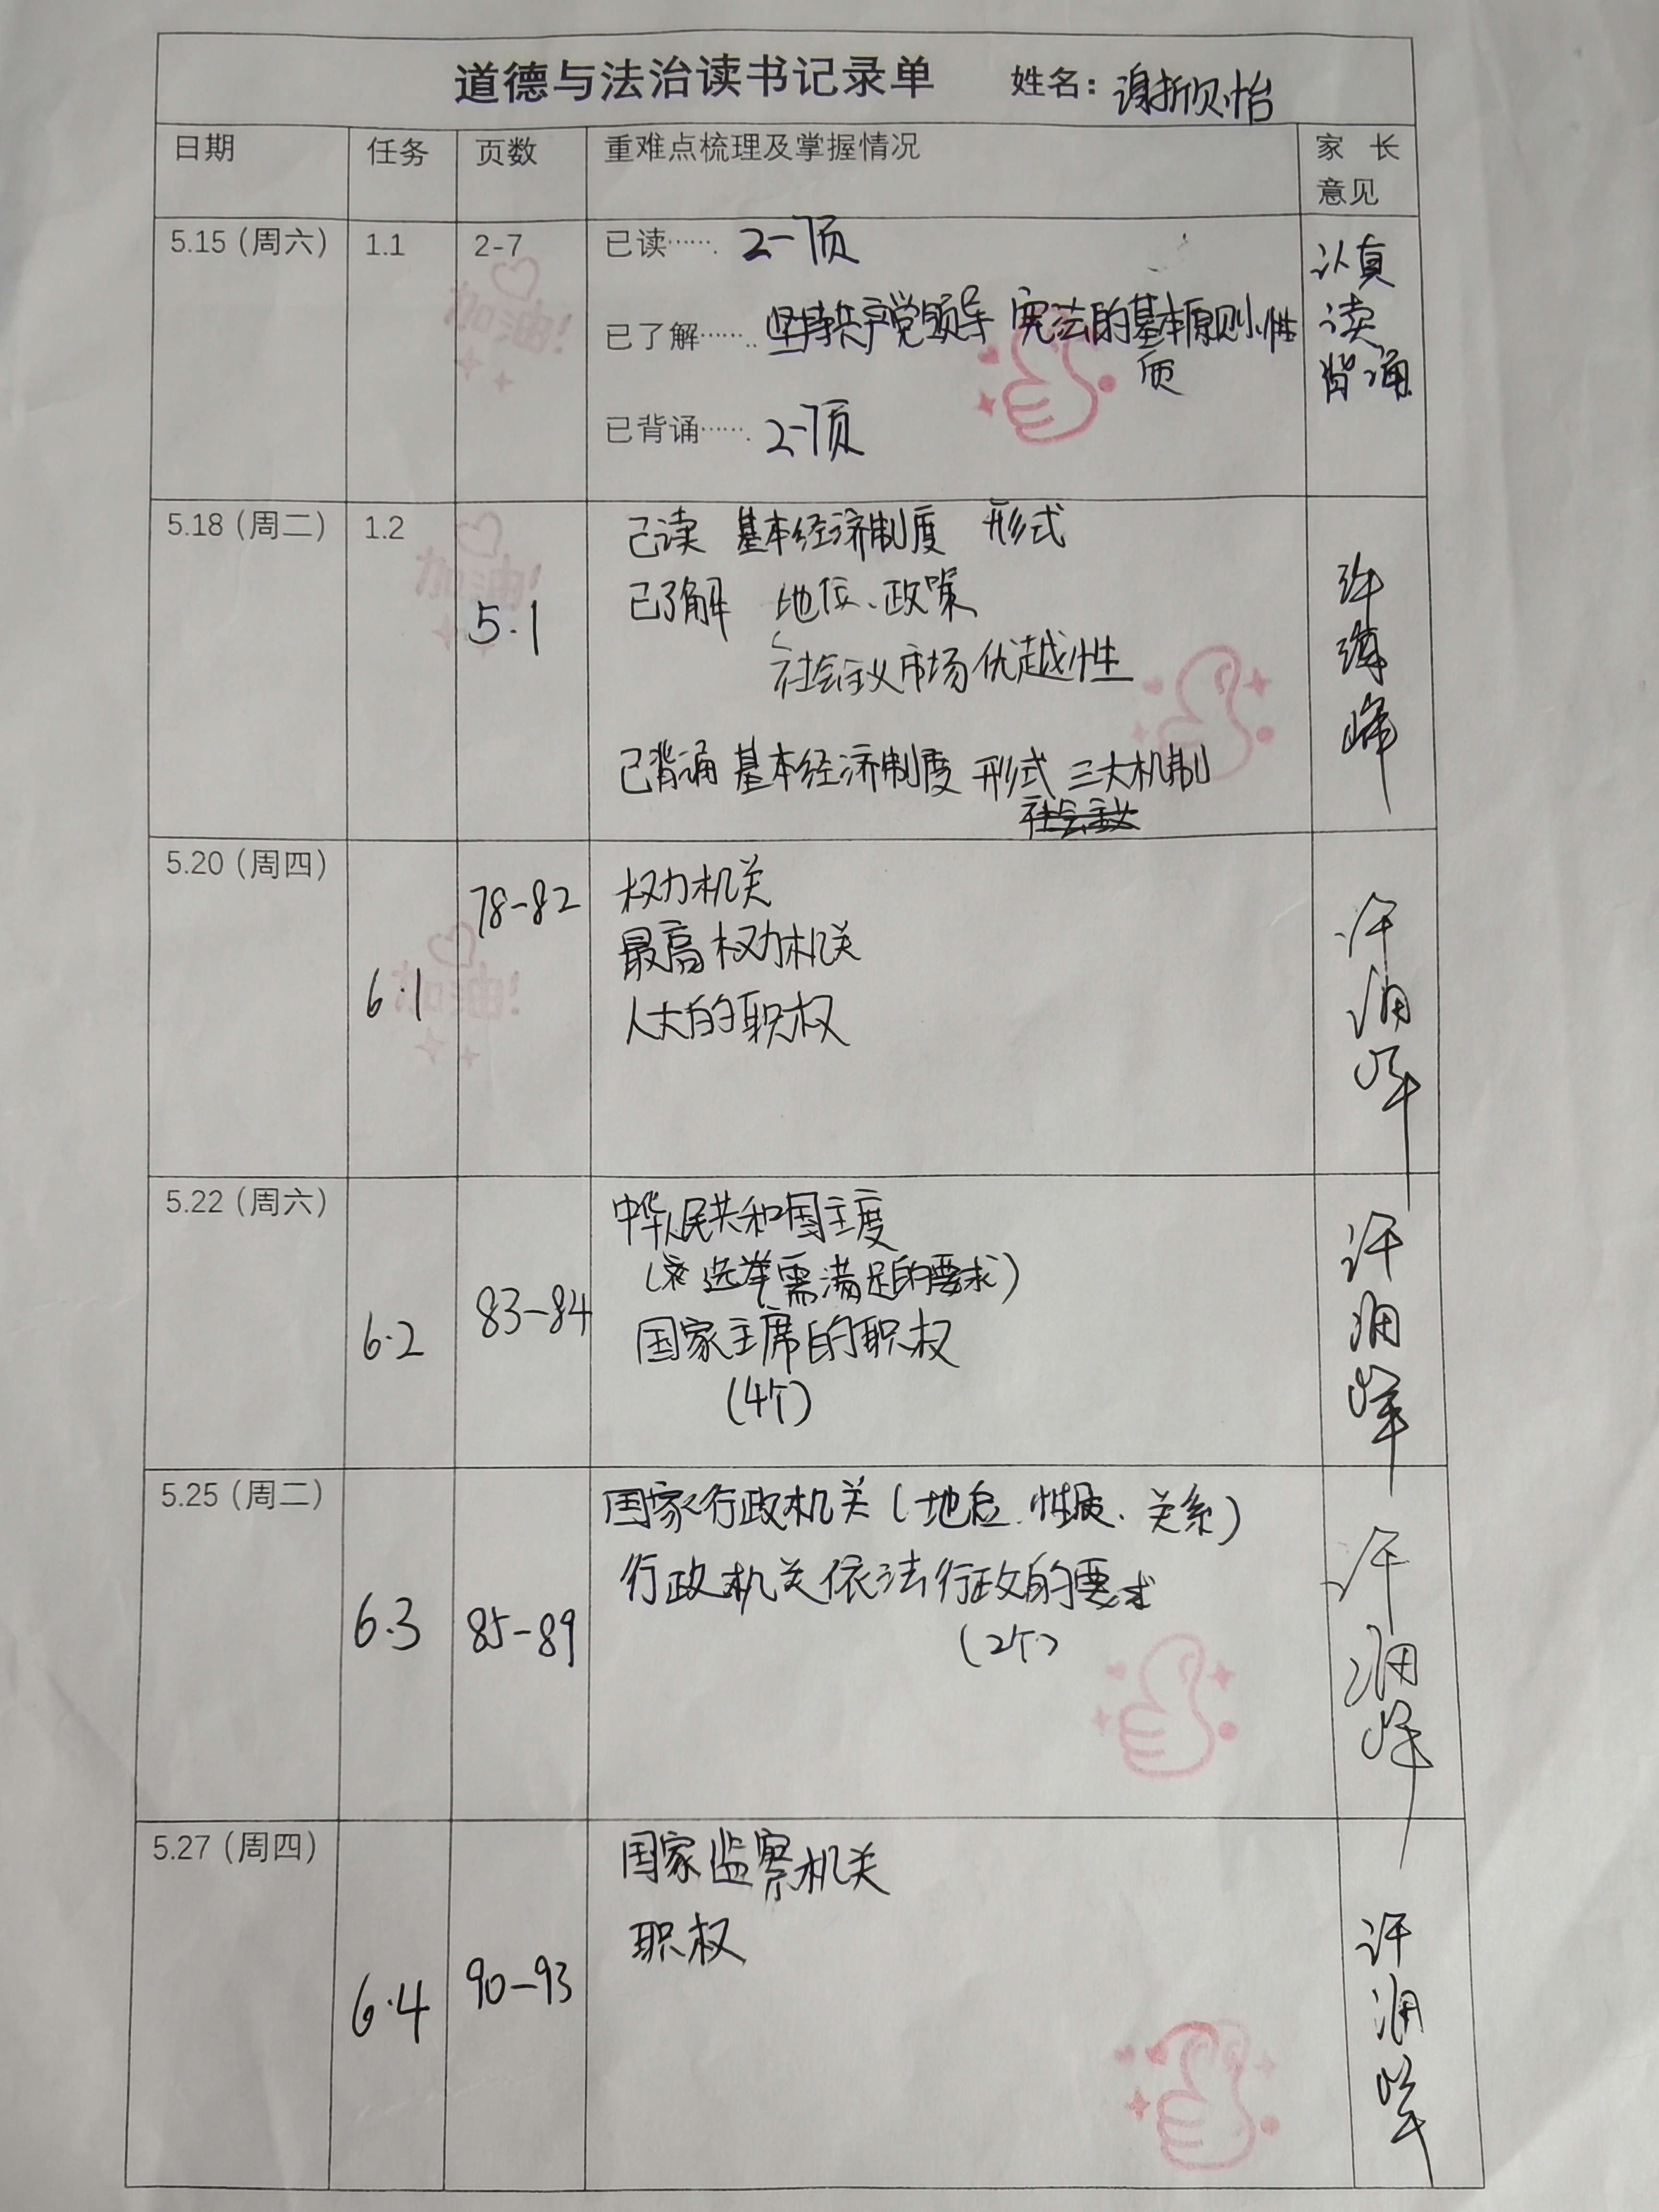 道德与法治读书记录单 姓名：谢欣怡
日期 任务 页数 重难点梳理及掌握情况 家长
意见
5.15（周六） 1.1 2-7 已读……. 2-7页
已了解…….. 坚持共产党领导 宪法的基本原则、性
质
已背诵……. 2-7页
认真
读
背诵
加油!
5.18（周二） 1.2 5.1
已读 基本经济制度 形式
已了解 地位、政策
社会主义市场优越性
已背诵 基本经济制度 形式 三大机制
加油!
5.20（周四） 6.1 78-82
权力机关
最高权力机关
人大的职权
许
润
峰
加油!
5.22（周六） 6.2 83-84
中华人民共和国主度
选举需满足的要求）
国家主席的职权
（4个）
许
润
峰
5.25（周二） 6.3 85-89
国家行政机关（地位、性质、关系）
行政机关依法行政的要求
（2个）
许
润
峰
5.27（周四） 6.4 90-93
国家监察机关
职权
许
润
峰